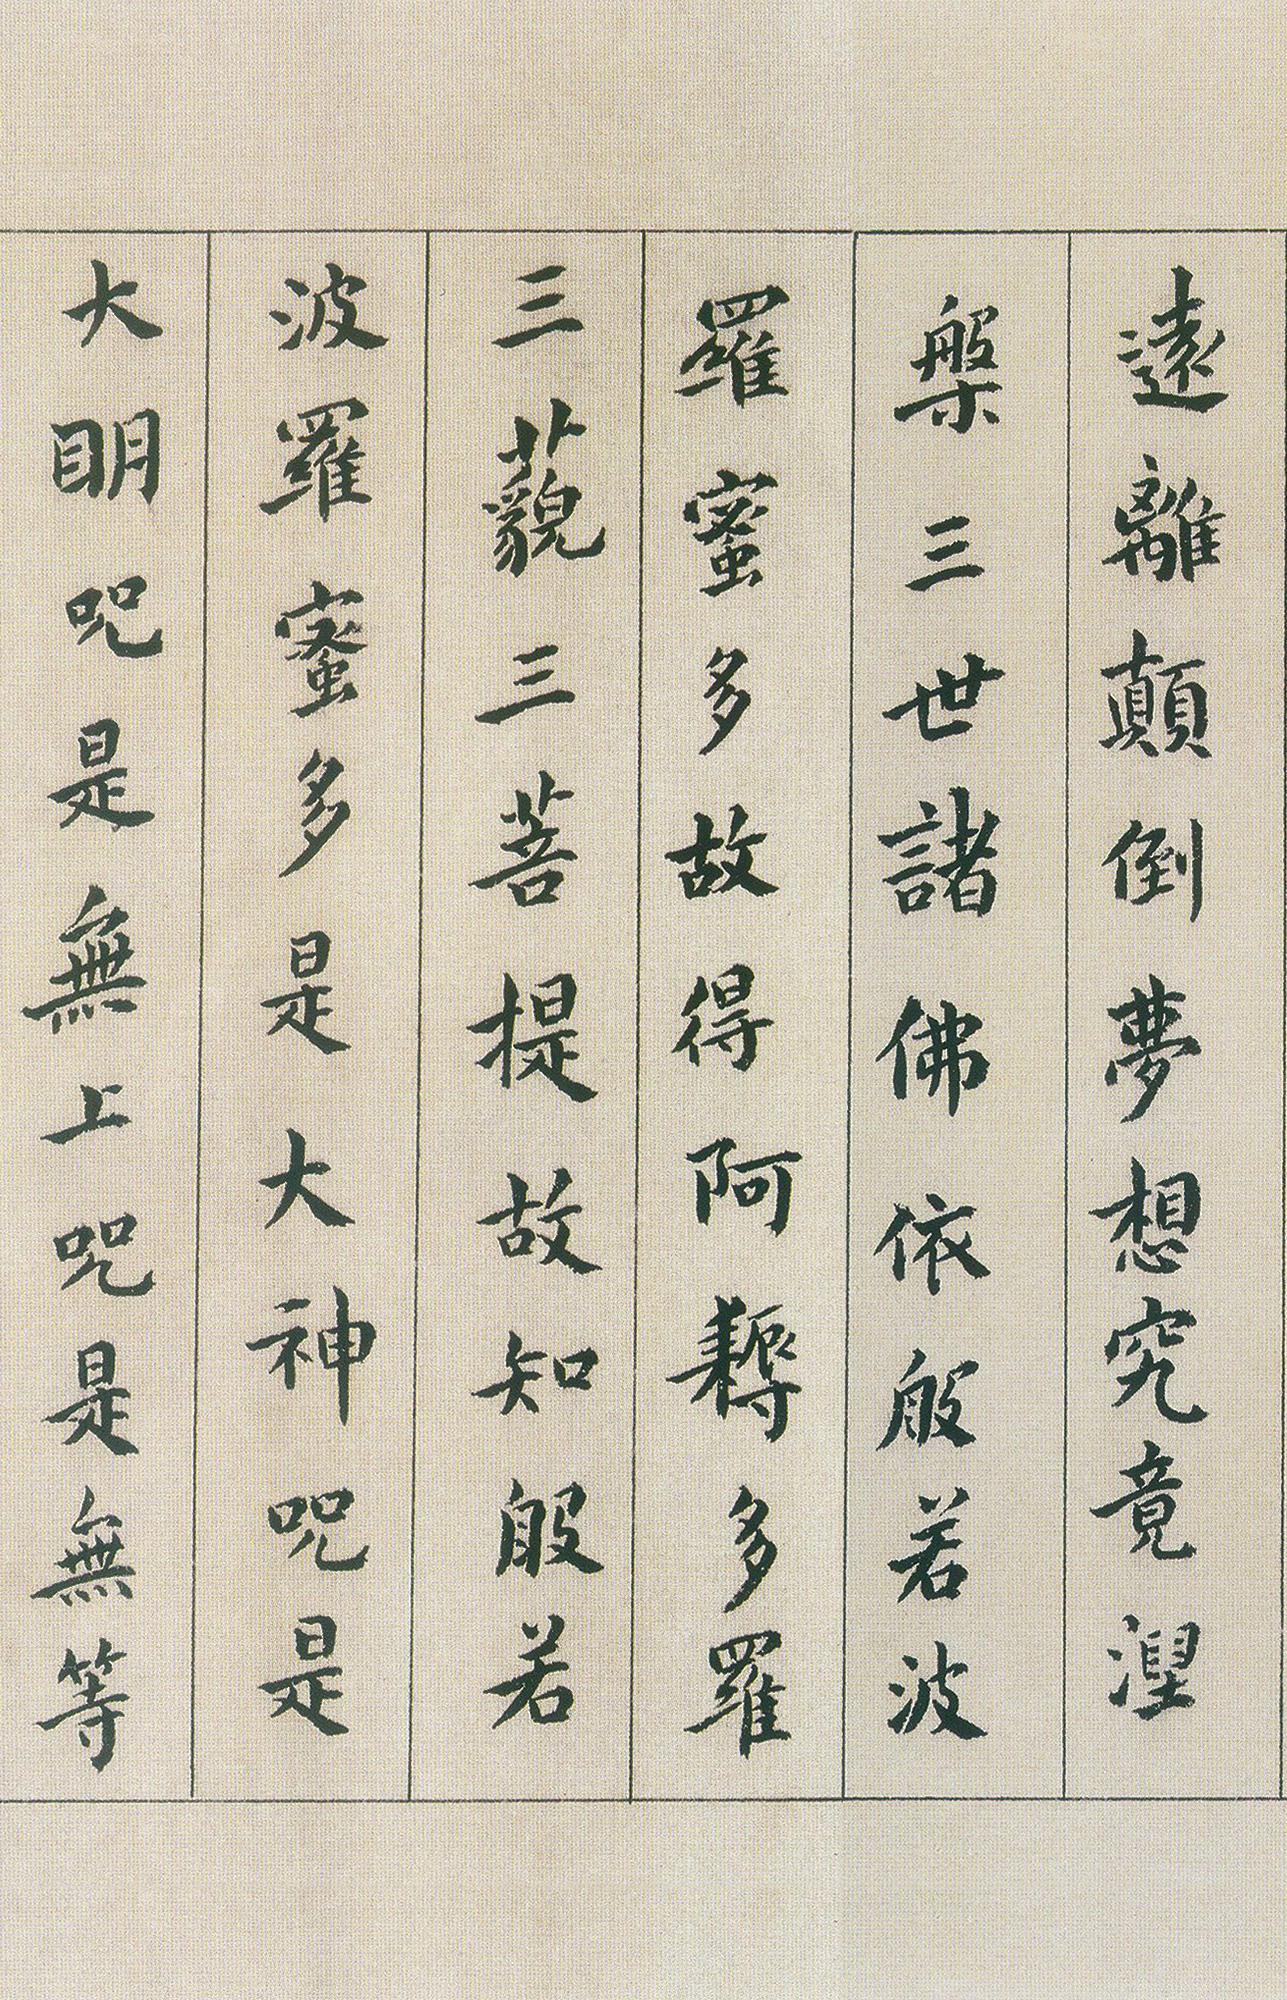 遠離顛倒夢想究竟涅
槃三世諸佛依般若波
羅蜜多故得阿耨多羅
三藐三菩提故知般若
波羅蜜多是大神咒是
大明咒是無上咒是無等